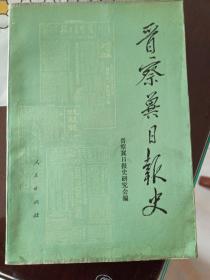 晋察冀日報史
晋察冀日报史研究会编
人民出版社